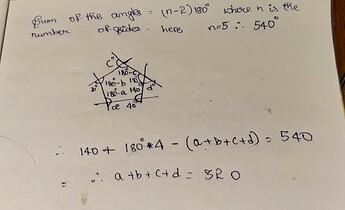 Sum of the angles = (n-2)180° where n is the
number of sides. here n=5 ∴ 540°
c°
180-c
b° 180-b 180-d d°
180-a 140
a° 40°
∴ 140 + 180°*4 - (a+b+c+d) = 540
= ∴ a+b+c+d = 320